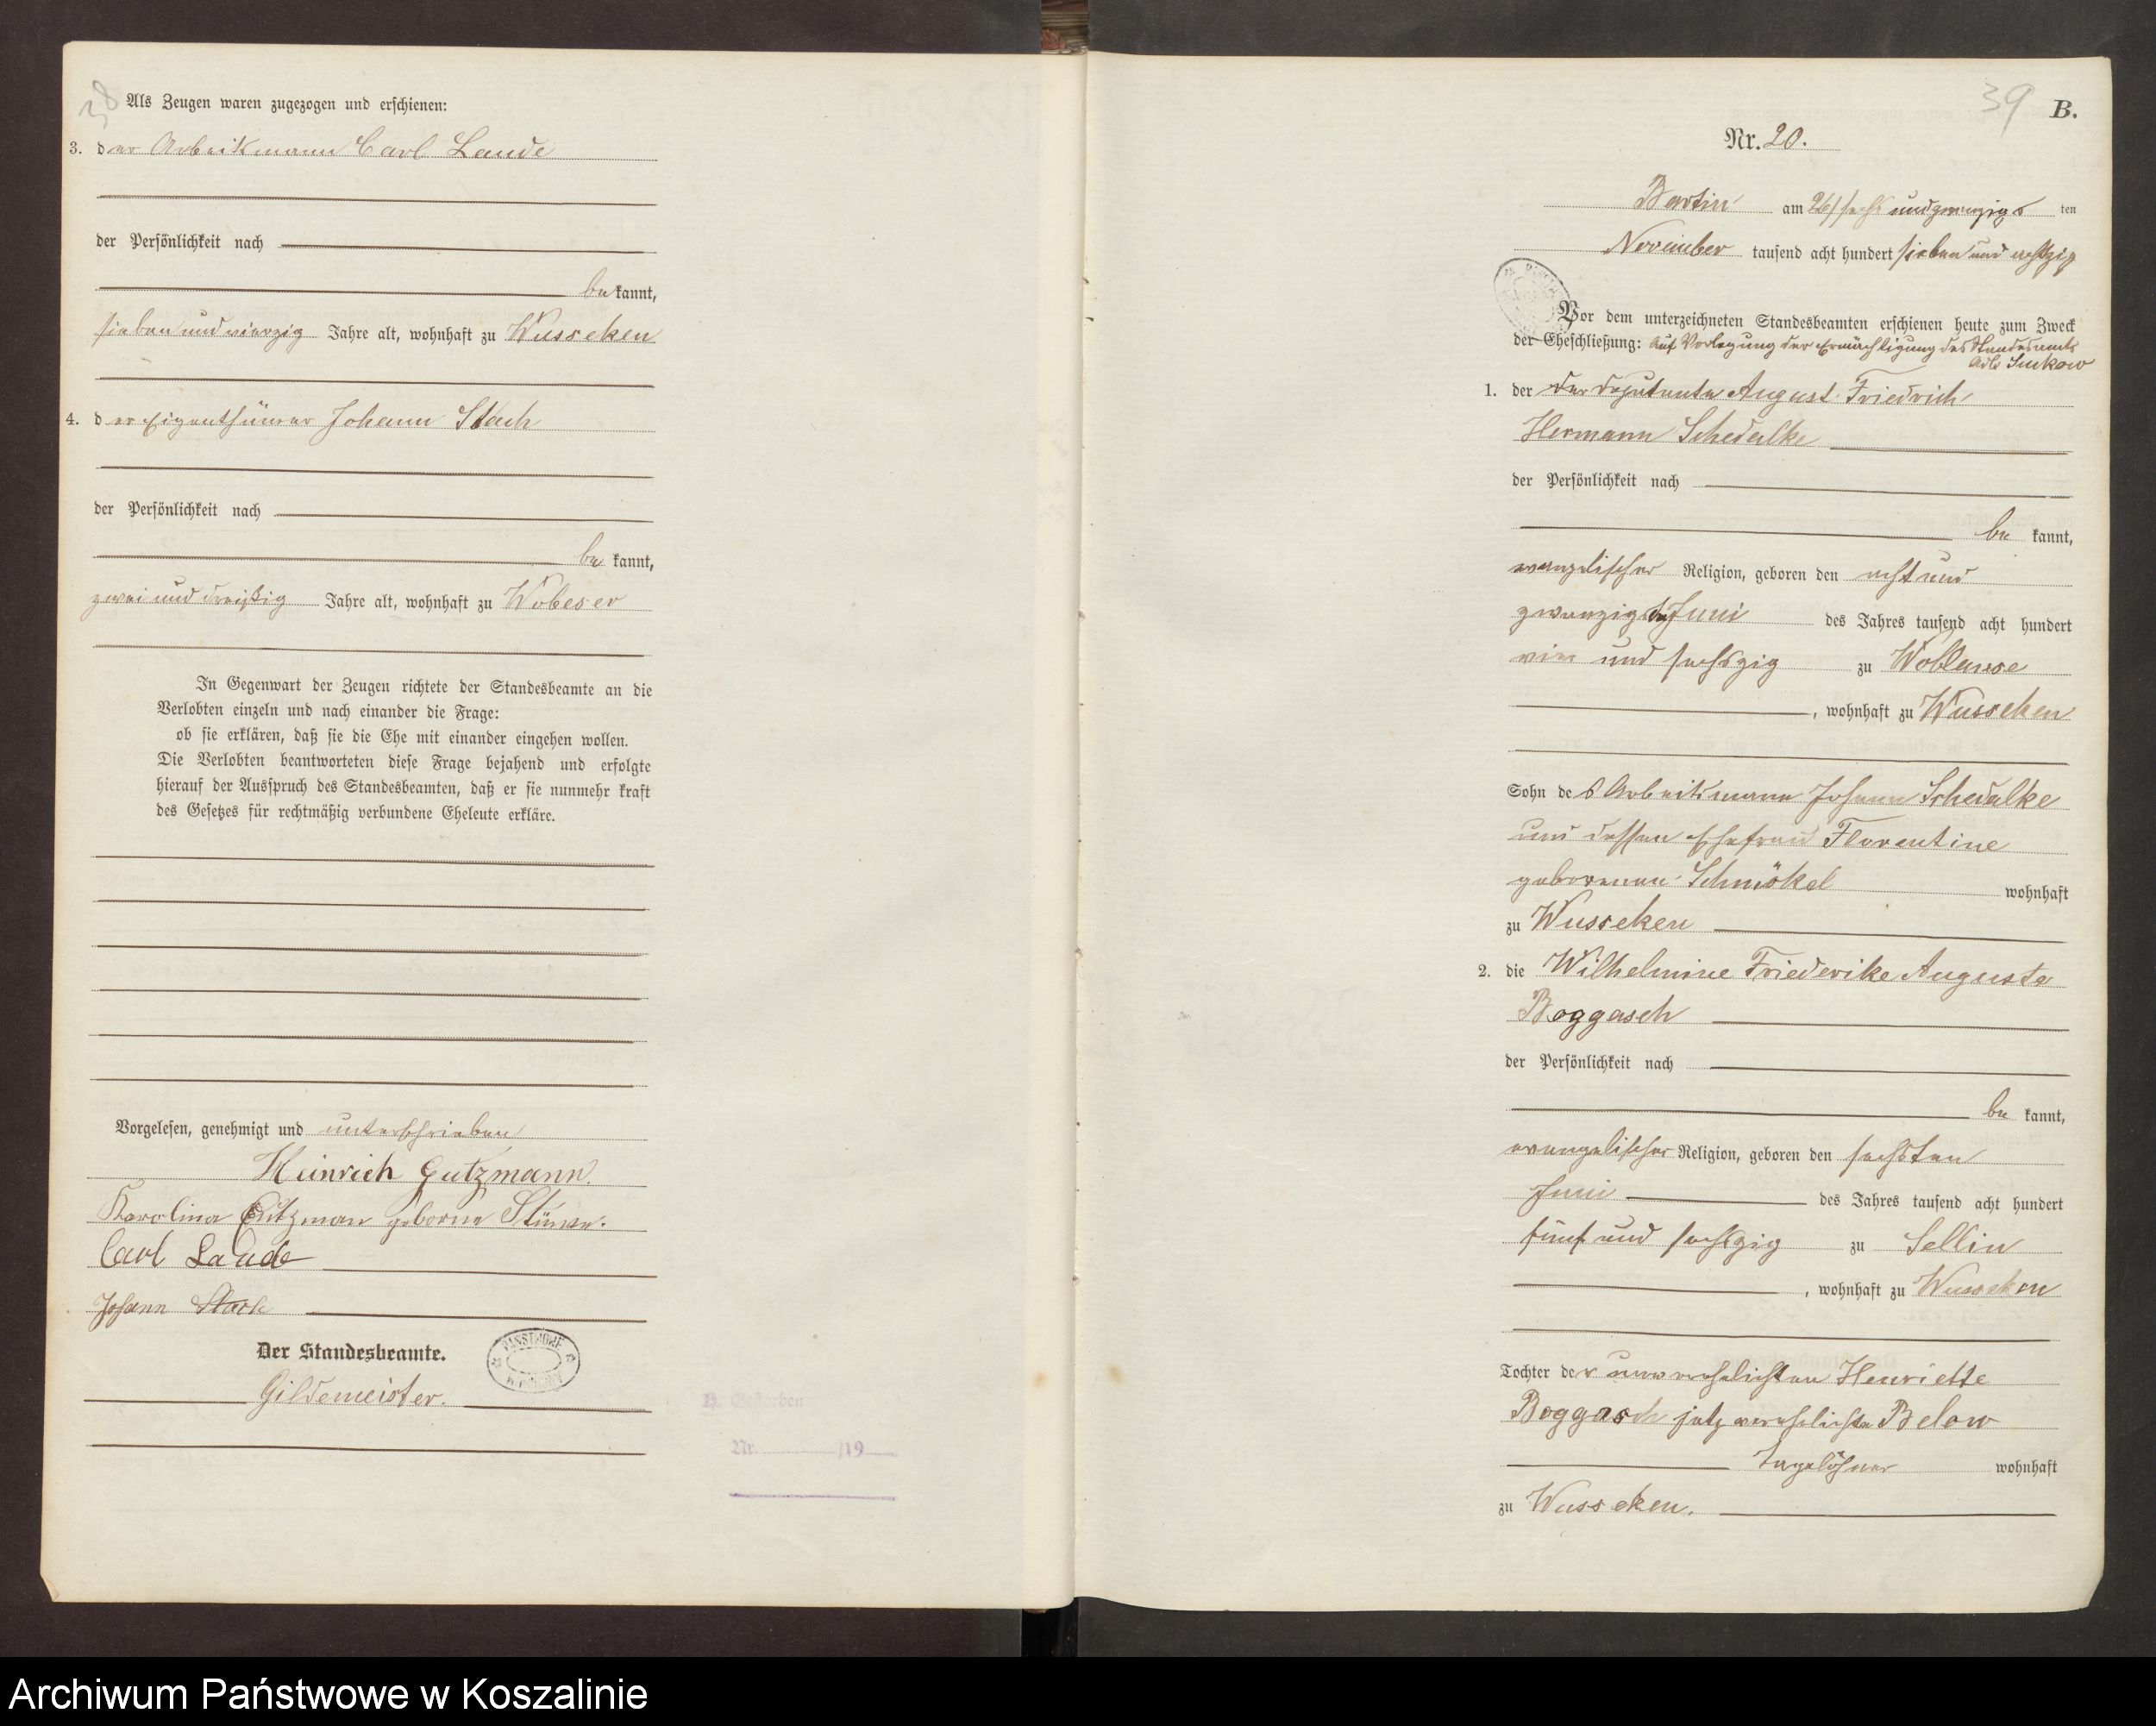 38
Als Zeugen waren zugezogen und erschienen:
3. der Arbeitsmann Carl Laude
der Persönlichkeit nach
bekannt,
sieben und vierzig Jahre alt, wohnhaft zu Wusseken
4. der Eigenthümer Johann Stach
der Persönlichkeit nach
bekannt,
zwei und dreißig Jahre alt, wohnhaft zu Wobeser
In Gegenwart der Zeugen richtete der Standesbeamte an die
Verlobten einzeln und nach einander die Frage:
ob sie erklären, daß sie die Ehe mit einander eingehen wollen.
Die Verlobten beantworteten diese Frage bejahend und erfolgte
hierauf der Ausspruch des Standesbeamten, daß er sie nunmehr kraft
des Gesetzes für rechtmäßig verbundene Eheleute erkläre.
Vorgelesen, genehmigt und unterschrieben
Heinrich Gutzmann.
Karolina Gutzman geborne
Carl Laude
Johann Stach
Der Standesbeamte.
Gildemeister.
Gestorben
Nr. /19
39
B.
Nr. 20.
Bartin am 26/ sechs und zwanzigs ten
November tausend acht hundert sieben und achtzig
Vor dem unterzeichneten Standesbeamten erschienen heute zum Zweck
der Eheschließung: Auf Vorlegung der Ermächtigung des Standesamts
Adl. Suckow
1. der der Deputante August Friedrich
Hermann Schedalke
der Persönlichkeit nach
be kannt,
evangelischer Religion, geboren den acht und
zwanzigsten Juni des Jahres tausend acht hundert
vier und sechszig zu Woblanse
, wohnhaft zu Wusseken
Sohn des Arbeitsmann Johann Schedalke
und dessen Ehefrau Florentine
geborenen Schmökel wohnhaft
zu Wusseken
2. die Wilhelmine Friederike Auguste
Boggasch
der Persönlichkeit nach
be kannt,
evangelischer Religion, geboren den sechsten
Juni des Jahres tausend acht hundert
fünf und sechszig zu Sellin
, wohnhaft zu Wusseken
Tochter der unverehelichten Henriette
Boggasch jetz verehelichte Below
Tagelöhner wohnhaft
zu Wusseken.
Archiwum Państwowe w Koszalinie